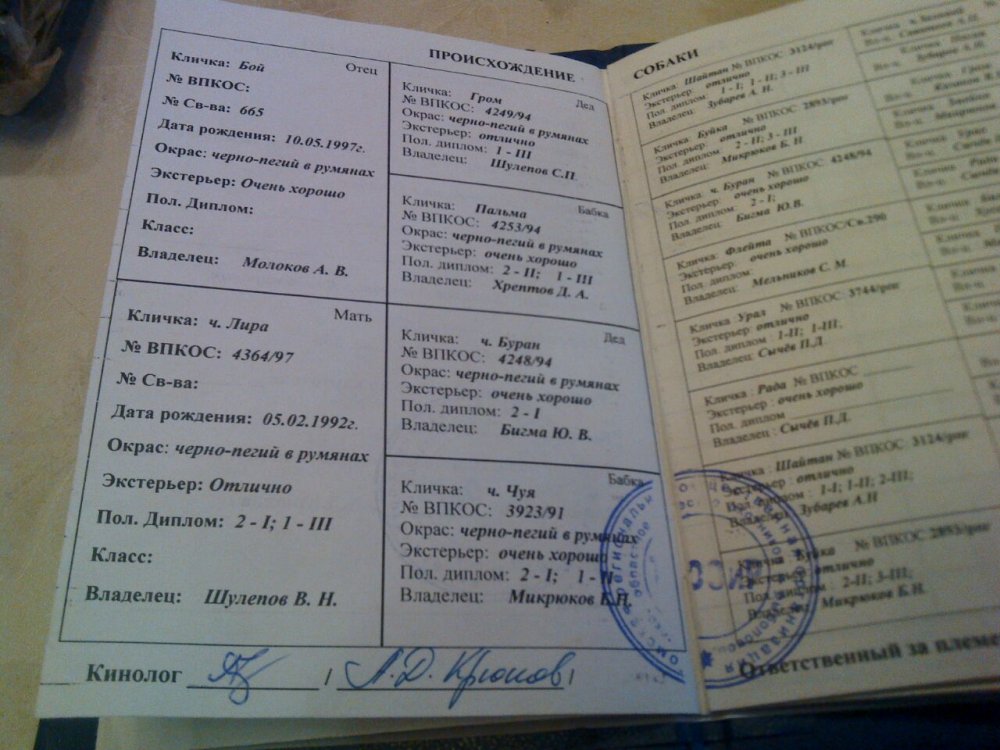 ПРОИСХОЖДЕНИЕ
Кличка: Бой Отец
№ ВПКОС:
№ Св-ва: 665
Дата рождения: 10.05.1997г.
Окрас: черно-пегий в румянах
Экстерьер: Очень хорошо
Пол. Диплом:
Класс:
Владелец: Молоков А. В.
Кличка: ч. Лира Мать
№ ВПКОС: 4364/97
№ Св-ва:
Дата рождения: 05.02.1992г.
Окрас: черно-пегий в румянах
Экстерьер: Отлично
Пол. Диплом: 2 - I; 1 - III
Класс:
Владелец: Шулепов В. Н.
Кличка: Гром Дед
№ ВПКОС: 4249/94
Окрас: черно-пегий в румянах
Экстерьер: отлично
Пол. диплом: 1 - III
Владелец: Шулепов С.П.
Кличка: Пальма Бабка
№ ВПКОС: 4253/94
Окрас: черно-пегий в румянах
Экстерьер: очень хорошо
Пол. диплом: 2 - II; 1 - III
Владелец: Хрептов Д. А.
Кличка: ч. Буран Дед
№ ВПКОС: 4248/94
Окрас: черно-пегий в румянах
Экстерьер: очень хорошо
Пол. диплом: 2 - I
Владелец: Бигма Ю. В.
Кличка: ч. Чуя Бабка
№ ВПКОС: 3923/91
Окрас: черно-пегий в румянах
Экстерьер: очень хорошо
Пол. диплом: 2 - I; 1 -
Владелец: Микрюков Б.Н.
Кинолог / А.Д. Крюков /
СОБАКИ
Кличка: Шайтан № ВПКОС 3124/рог
Экстерьер: отлично
Пол. диплом: 1 - I; 1 - II; 3 - III
Владелец: Зубарев А. Н.
Кличка: Буйка № ВПКОС 2893/рог
Экстерьер: отлично
Пол. диплом: 2 - II; 3 - III
Владелец: Микрюков Б. Н.
Кличка: ч. Буран № ВПКОС 4248/94
Экстерьер: очень хорошо
Пол. диплом: 2 - I;
Владелец: Бигма Ю.В.
Кличка: Флейта № ВПКОС/Св.290
Экстерьер: очень хорошо
Пол. диплом
Владелец: Мельников С. М.
Кличка: Урал № ВПКОС: 3744/рог
Экстерьер: отлично
Пол. диплом: 1-II; 1-III;
Владелец: Сычёв П.Д.
Кличка: Рада № ВПКОС
Экстерьер: очень хорошо
Пол. диплом
Владелец: Сычёв П.Д.
Кличка: Шайтан № ВПКОС: 3124/рог
Экстерьер: отлично
Пол. диплом: 1-I; 1-II; 2-III;
Владелец: Зубарев А.Н
№ ВПКОС 2893/рог
Экстерьер: отлично
Пол. диплом: 2-II; 3-III;
Владелец: Микрюков Б.Н.
Ответственный за племе